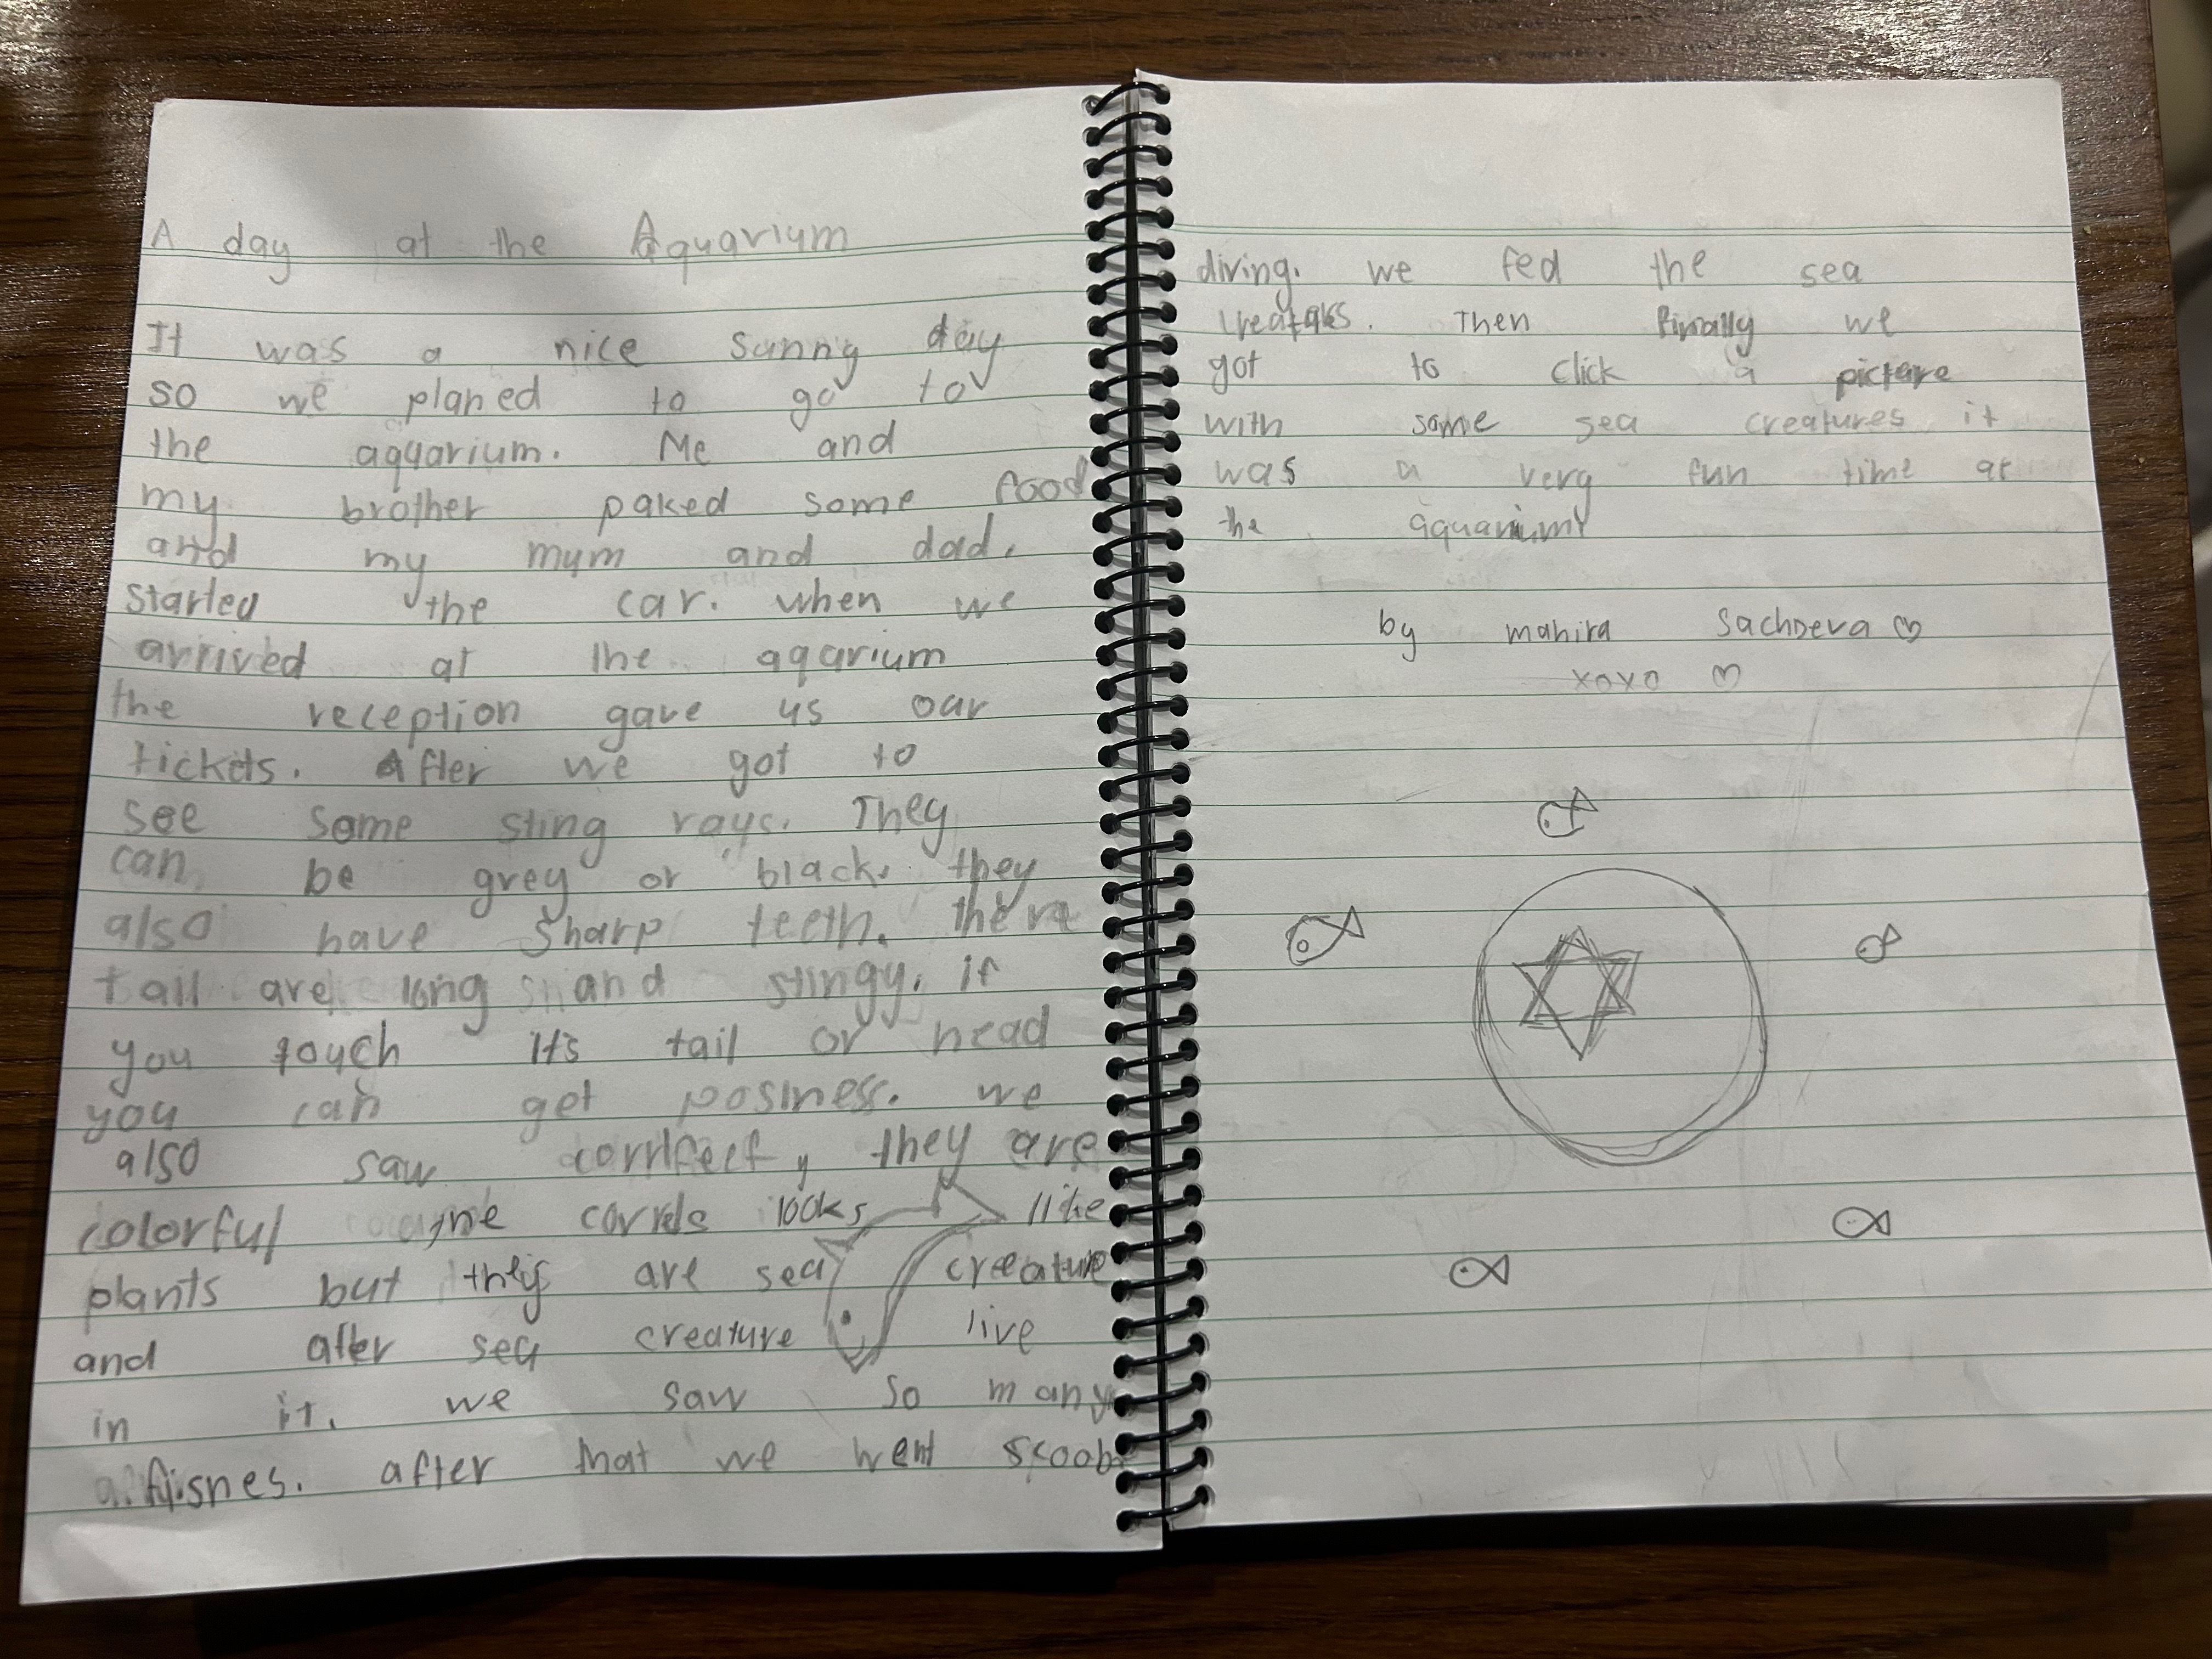 A day at the Aquarium
It was a nice sunny day
so we planed to go to
the aquarium. Me and
my brother paked some food
and my mum and dad.
started the car. when we
arrived at the aqarium
the reception gave us our
tickets. After we got to
see some sting rays. They
can be grey or black. they
also have sharp teeth. there
tail are long and stingy. if
you touch it's tail or head
you can get posiness. we
also saw, they are
colorful correls looks like
plants but they are sea creature
and after sea creature live
in it. we saw so many
fishes. after that we went scoob
diving. we fed the sea
. Then finally we
got to click a picture
with some sea creatures it
was a very fun time at
the aquarium
by mahira SachDeva ♡
xoxo ♡